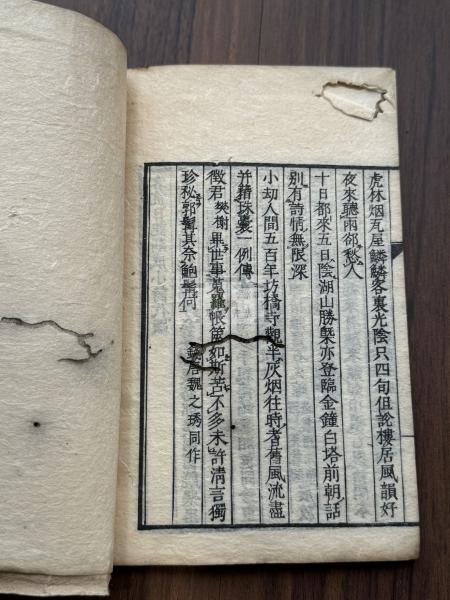 虎林烟瓦屋鱗鱗客裏光陰只四旬但說樓居風韻好
夜來聽雨郤愁人
十日都來五日陰湖山勝槩亦登臨金鐘白塔前朝話
別有詩情無限深
小劫人間五百年坊橋寺觀半灰烟往時耆舊風流盡
并藉珠囊一例傳
徵君樊榭畢世事蒐羅帳如斯苦不多未許淸言獨
珍秘郭其奈鮑何
唐魏之琇同作